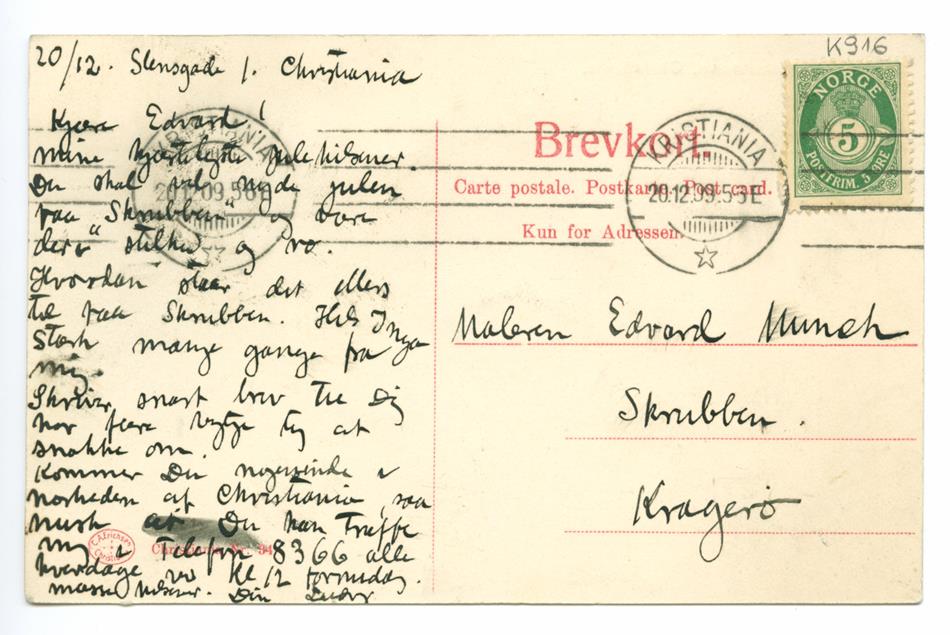 K916
20/12. Stensgade 1. Christiania
Kjære Edvard!
mine hjerteligste julehilsner.
Du skal vel nyde julen
paa "Skrubben" og være
der i og ro.
Hvordan staar det ellers
til paa Skrubben. Hils Inga
Stærk mange gange fra
mig.
Skriver snart brev til Dig
har flere ting at
snakke om.
Kommer Du nogensinde i
nærheden af Christiania, saa
husk at Du kan træffe
mig i Telefon 8366 alle
hverdage ved Kl 12 formiddag.
masse hilsener. Din Ludv
NORGE
5
POSTFRIM. 5 ØRE
KRISTIANIA
20.12.09.5-5E
KRISTIANIA
20.12.09.5-5E
Brevkort.
Carte postale. Postkarte. Post card.
Kun for Adressen.
Maleren Edvard Munch
Skrubben.
Kragerø
Christiania Nr. 94